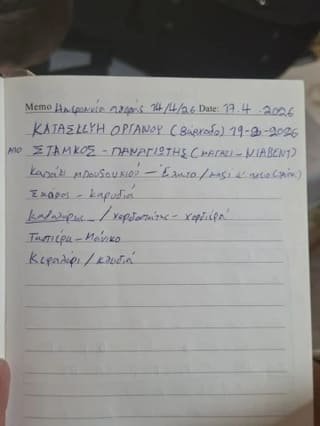 Memo Ημερομηνία αγοράς 14/4/26 Date: 17.4.2026
ΚΑΤΑΣΚΕΥΗ ΟΡΓΑΝΟΥ (Βάρκαδο) 19-2-2026
ΑΠΟ ΣΤΑΜΚΟΣ - ΠΑΝΑΓΙΩΤΗΣ (ΜΑΓΑΖΙ - ΝΙΑΒΕΝΤ)
Καπάκι μπουζουκιού - Έλατο / μαζί
Σκάφος - καρυδιά
Καβαλάρης / χορδοστάτης - χορδιέρα
Ταστιέρα - Μάνικο
Κεφαλάρι / κλειδιά